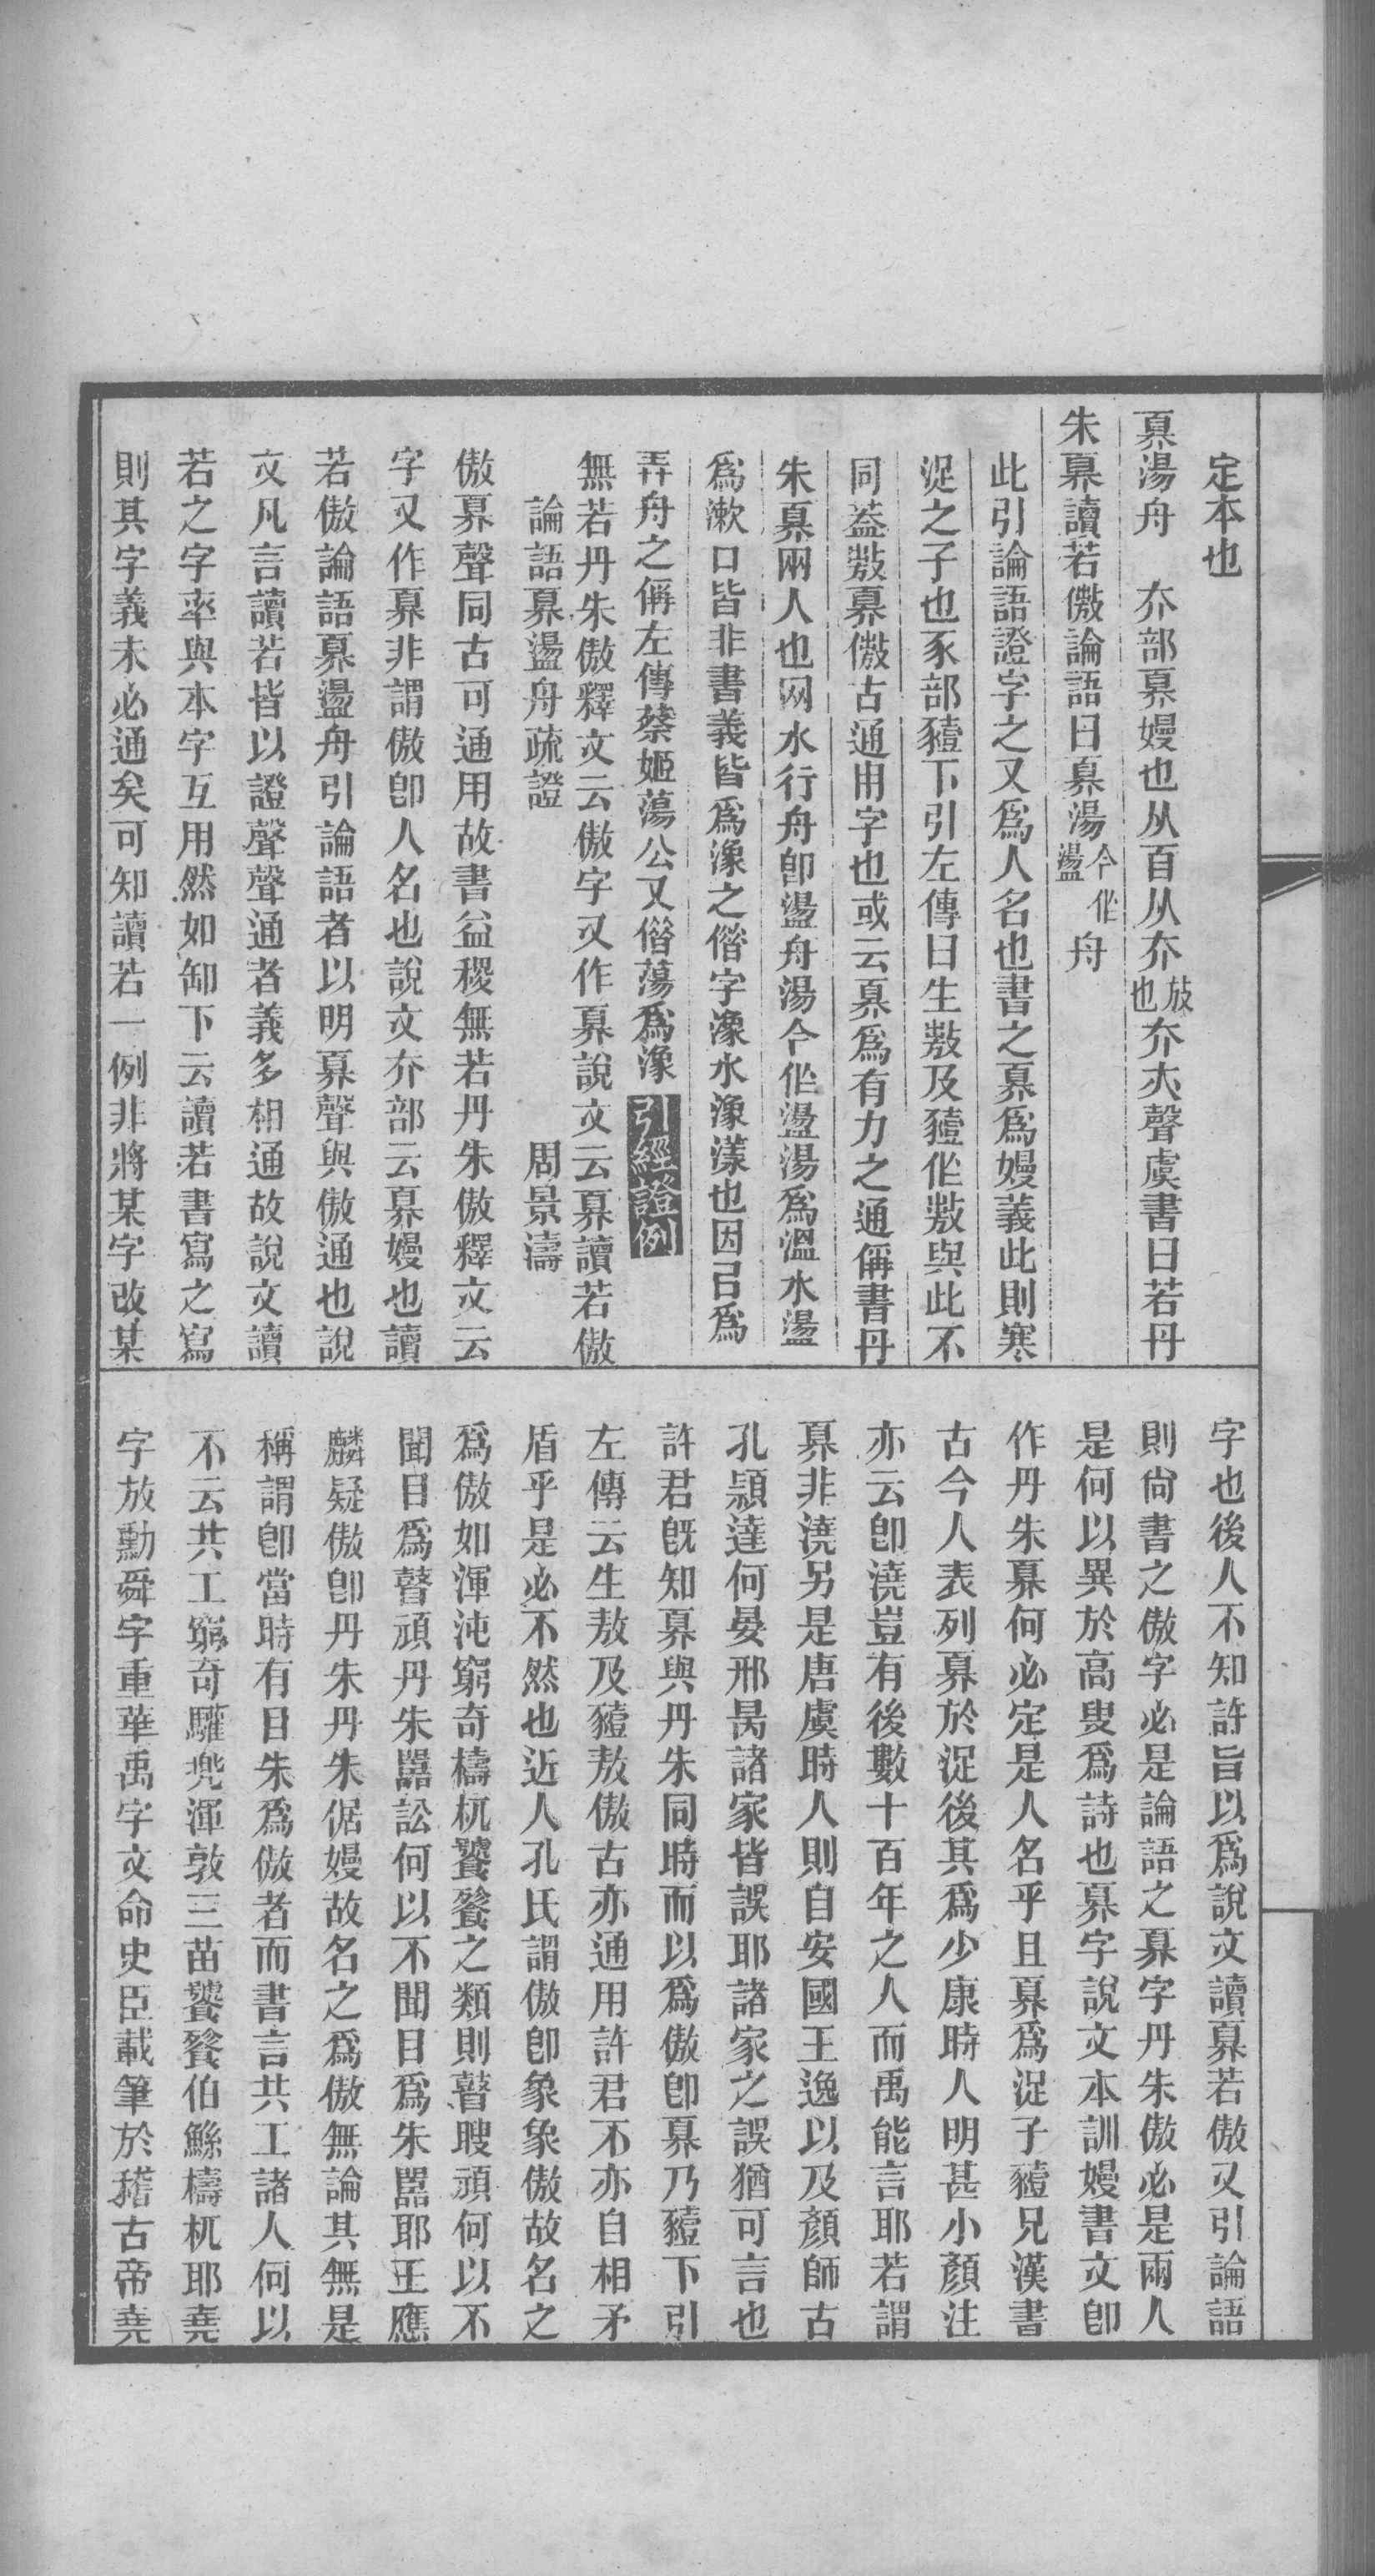 定本也
奡湯舟　夰部奡嫚也从百从夰放也夰亦聲虞書曰若丹
朱奡讀若傲論語曰奡湯今作盪舟
此引論語證字之又爲人名也書之奡爲嫚義此則寒
浞之子也豕部豷下引左傳曰生敖及豷作敖與此不
同葢敖奡傲古通用字也或云奡爲有力之通偁書丹
朱奡兩人也罔水行舟卽盪舟湯今作盪湯爲溫水盪
爲漱口皆非書義皆爲潒之偕字潒水潒瀁也因㠯爲
弄舟之偁左傳蔡姬蕩公又偕蕩爲潒引經證例
無若丹朱傲釋文云傲字又作奡說文云奡讀若傲
論語奡盪舟疏證　周景濤
傲奡聲同古可通用故書益稷無若丹朱傲釋文云
字又作奡非謂傲卽人名也說文夰部云奡嫚也讀
若傲論語奡盪舟引論語者以明奡聲與傲通也說
文凡言讀若皆以證聲聲通者義多相通故說文讀
若之字率與本字互用然如卸下云讀若書寫之寫
則其字義未必通矣可知讀若一例非將某字改某
字也後人不知許旨以爲說文讀奡若傲又引論語
則尙書之傲字必是論語之奡字丹朱傲必是兩人
是何以異於高叟爲詩也奡字說文本訓嫚書文卽
作丹朱奡何必定是人名乎且奡爲浞子豷兄漢書
古今人表列奡於浞後其爲少康時人明甚小顏注
亦云卽澆豈有後數十百年之人而禹能言耶若謂
奡非澆另是唐虞時人則自安國王逸以及顏師古
孔穎達何晏邢昺諸家皆誤耶諸家之誤猶可言也
許君旣知奡與丹朱同時而以爲傲卽奡乃豷下引
左傳云生敖及豷敖傲古亦通用許君不亦自相矛
盾乎是必不然也近人孔氏謂傲卽象象傲故名之
爲傲如渾沌窮奇檮杌饕餮之類則瞽瞍頑何以不
聞目爲瞽頑丹朱嚚訟何以不聞目爲朱嚚耶王應
麟疑傲卽丹朱丹朱倨嫚故名之爲傲無論其無是
稱謂卽當時有目朱爲傲者而書言共工諸人何以
不云共工窮奇驩兜渾敦三苗饕餮伯鯀檮杌耶堯
字放勳舜字重華禹字文命史臣載筆於稽古帝堯